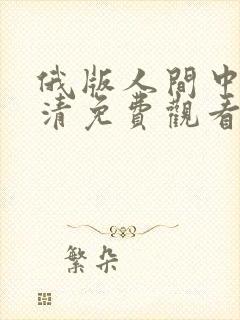 俄版人間中
清免費觀看
繁朵